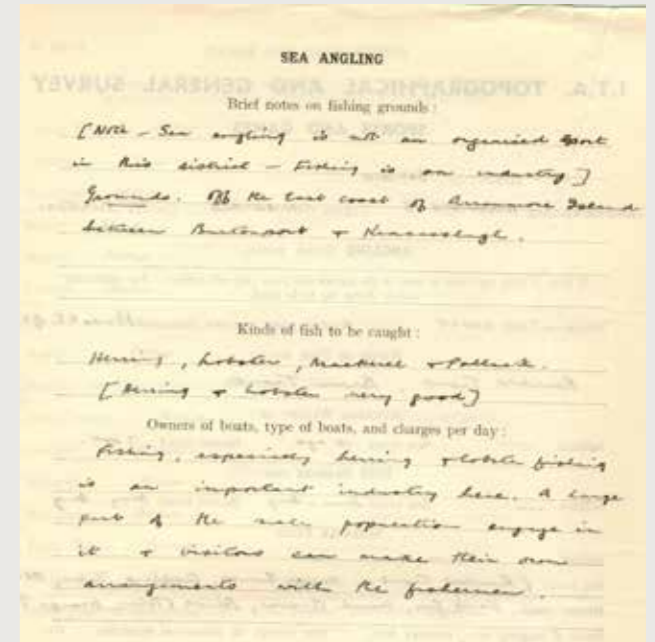 SEA ANGLING
Brief notes on fishing grounds :
[Note - Sea angling is not an organised sport
in this district - Fishing is an industry]
Grounds. Off the East coast of Arranmore Island
between Burtonport & Kincasslagh.
Kinds of fish to be caught :
Herring, Lobster, Mackerel & Pollack.
[Herring & Lobster very good]
Owners of boats, type of boats, and charges per day :
Fishing, especially herring & lobster fishing
is an important industry here. A large
part of the male population engage in
it & visitors can make their own
arrangements with the fishermen.